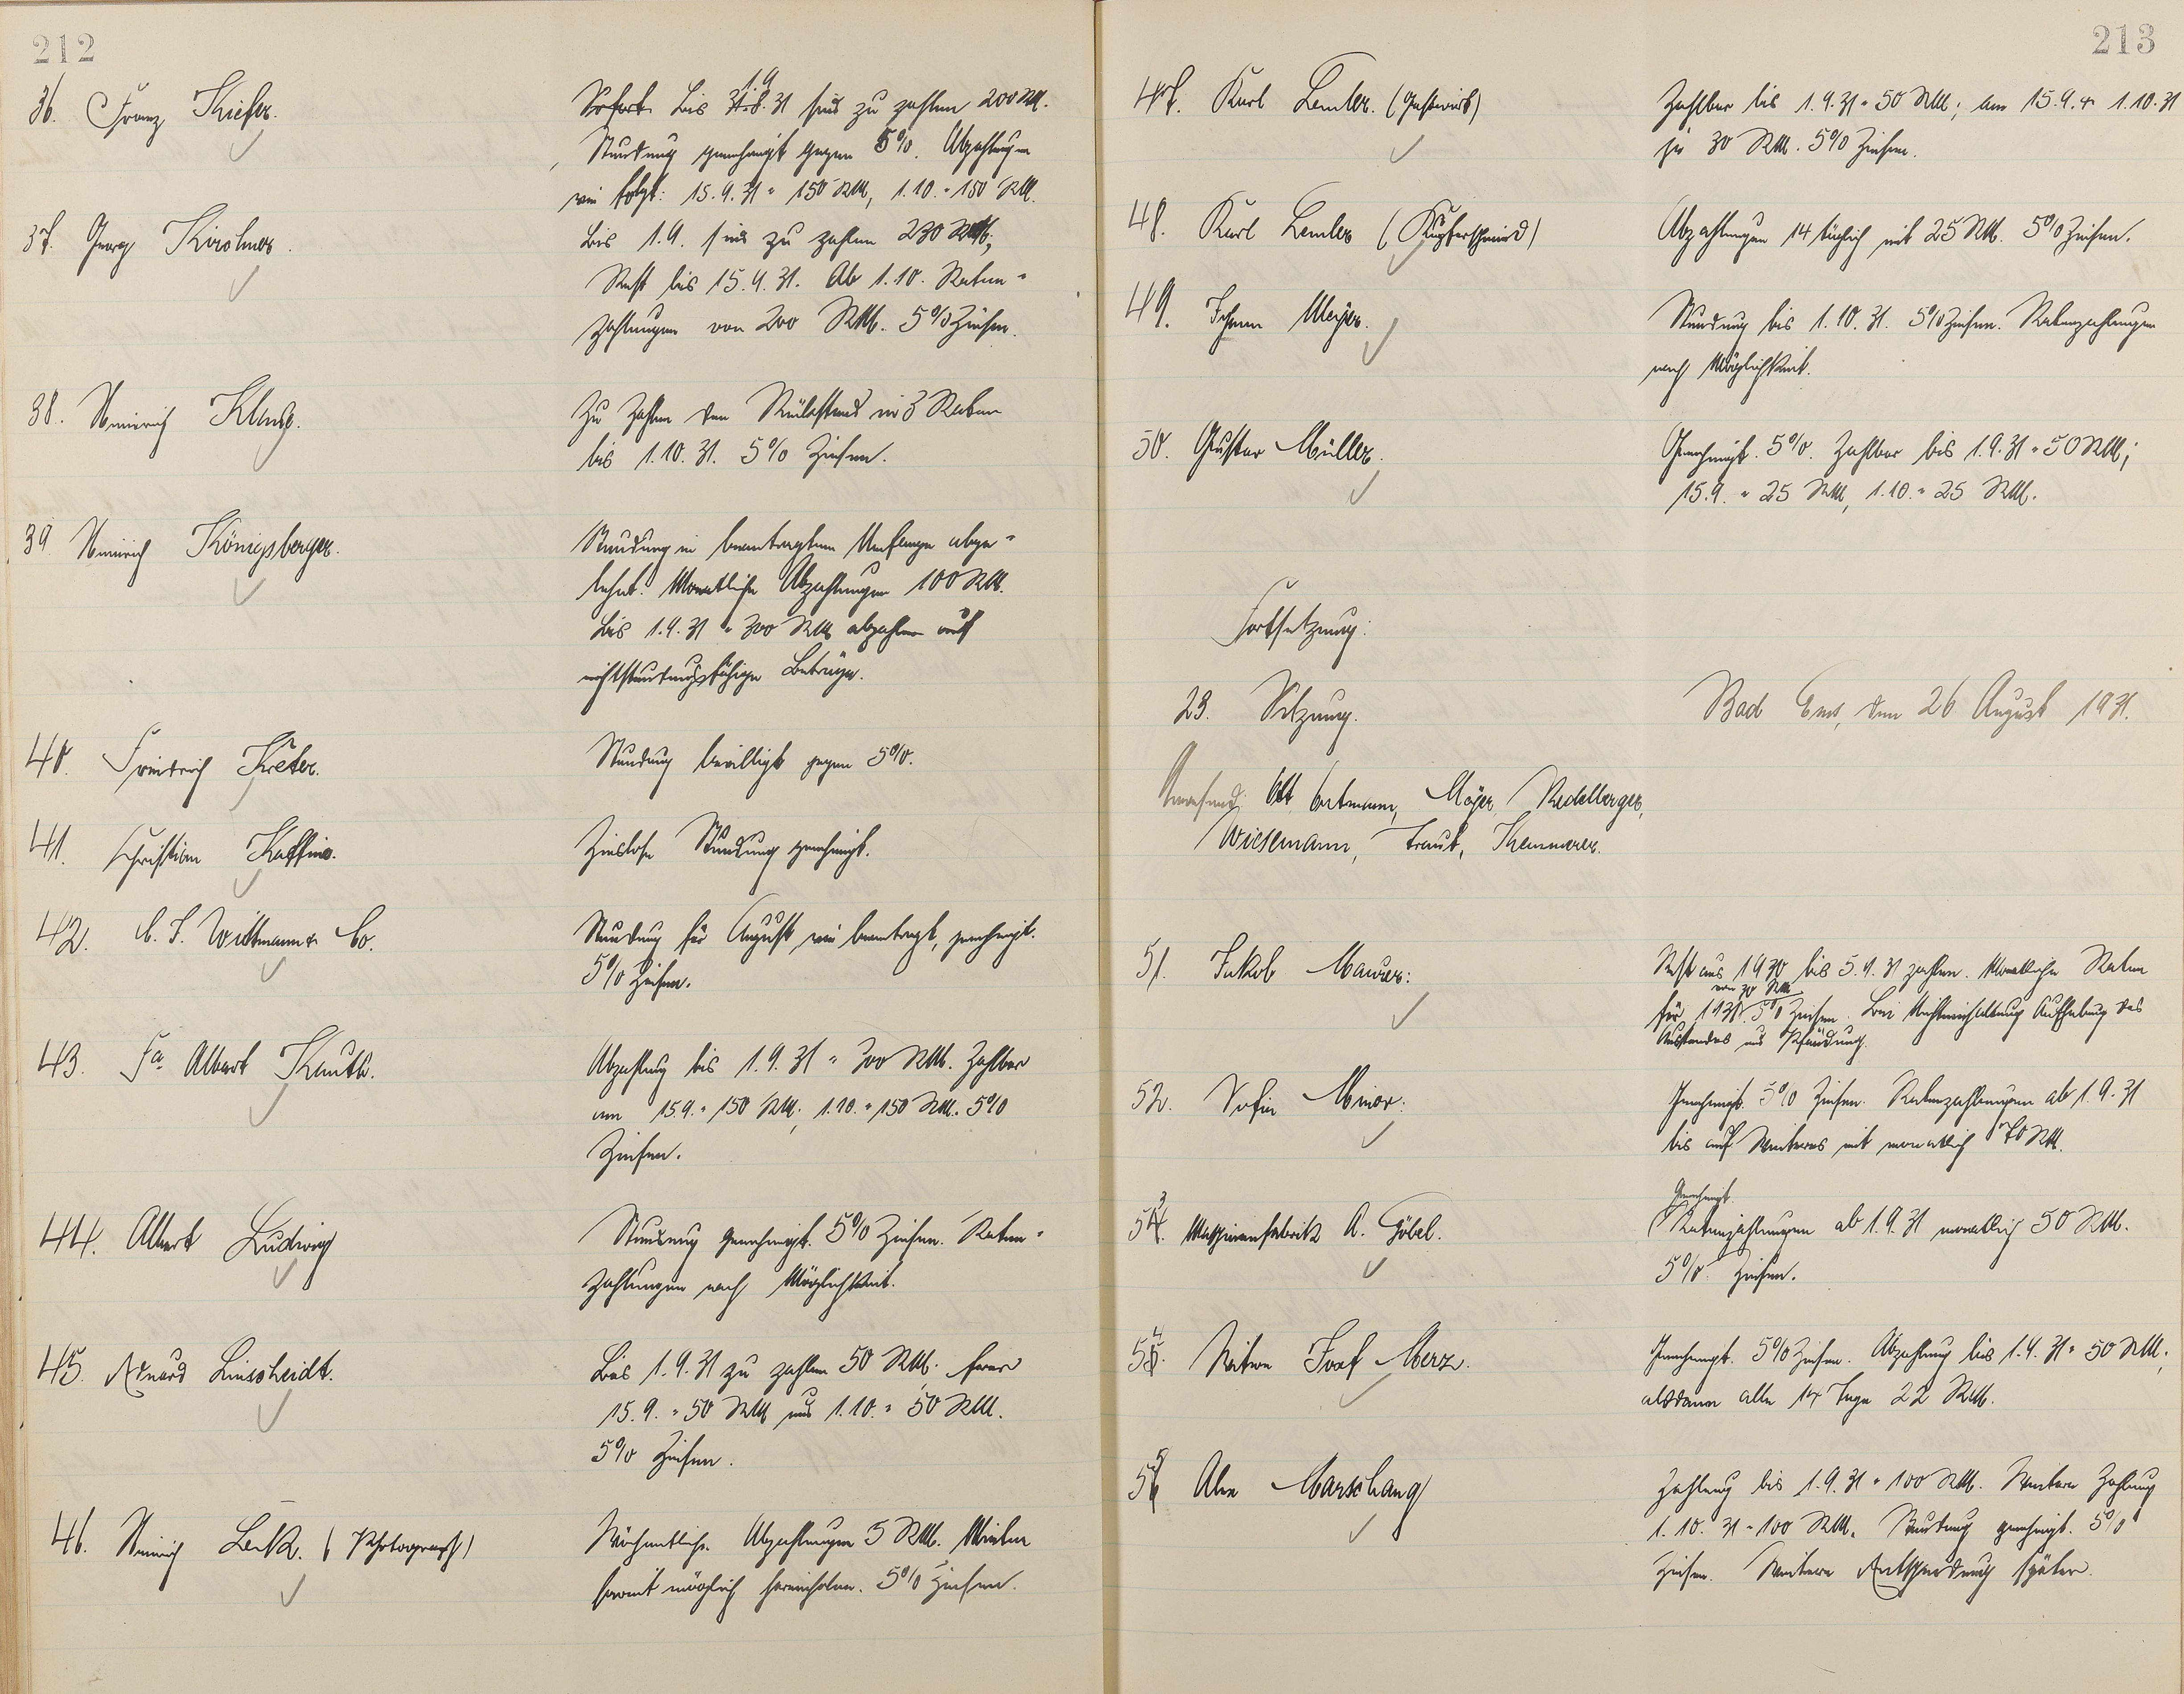 212
36. Franz Kiefer.
Sofort bis 31.8.31 sind zu zahlen 200 RM.
1.9
Stundung genehmigt gegen 5%. Abzahlungen
wie folgt: 15.9.31 = 150 RM, 1.10. = 150 RM.
37. Georg Kirchner.
Bis 1.9. sind zu zahlen 230 RM;
Rest bis 15.9.31. Ab 1.10. Raten-
zahlungen von 200 RM. 5% Zinsen.
38. Heinrich
Zu zahlen den Rückstand in 3 Raten
bis 1.10.31. 5% Zinsen.
39. Heinrich Königsberger.
Stundung in beantragtem Umfange abge-
lehnt. Monatliche Abzahlungen 100 RM.
Bis 1.9.31 = 300 RM abzahlen auf
nichtstundungsfähige Beträge.
40. Friedrich Kreter.
Stundung bewilligt gegen 5%.
41. Christian Kaffine.
Zinslose Stundung genehmigt.
42. C. F. Wittmann & Co.
Stundung für August wie beantragt, genehmigt.
5% Zinsen.
43. Fa. Albert Kauth.
Abzahlung bis 1.9.31 = 300 RM. Zahlbar
am 15.9. = 150 RM; 1.10. = 150 RM. 5%
Zinsen.
44. Albert Ludwig
Stundung genehmigt. 5% Zinsen. Raten-
zahlungen nach Möglichkeit.
45. Eduard Linscheidt.
Bis 1.9.31 zu zahlen 50 RM. ferner
15.9. = 50 RM und 1.10. = 50 RM.
5% Zinsen.
46. Heinrich Lenk. (Photograph)
Wöchentliche Abzahlungen 5 RM. Mieten
soweit möglich hereinholen. 5% Zinsen.
213
47. Karl Lemler. (Gastwirt)
Zahlbar bis 1.9.31 = 50 RM; am 15.9. & 1.10.31
je 30 RM. 5% Zinsen.
48. Karl Lemler (Kupferschmied)
Abzahlungen 14 täglich mit 25 RM. 5% Zinsen.
49. Meyer.
Stundung bis 1.10.31. 5% Zinsen. Ratenzahlungen
nach Möglichkeit.
50. Gustav Müller.
Genehmigt. 5%. Zahlbar bis 1.9.31 = 50 RM;
15.9. = 25 RM, 1.10. = 25 RM.
Fortsetzung:
23. Sitzung.
Bad Ems, den 26 August 1931.
Anwesend: Ortmann, Mayer, Redelberger,
Wiesemann, Traut, Kemmerer.
51. Jakob Maurer:
Rest aus 1930 bis 5.9.31 zahlen. Monatliche Raten
von 30 RM
für 1931. 5% Zinsen. Bei Nichteinhaltung Aufhebung des
Ausstandes und Pfändung.
52. Sofie Minor:
Genehmigt. 5% Zinsen. Ratenzahlungen ab 1.9.31
bis auf Weiteres mit monatlich 70 RM.
53. Maschinenfabrik A. Göbel.
Genehmigt.
Ratenzahlungen ab 1.9.31 monatlich 50 RM.
5% Zinsen.
54. Witwe Josef Merz.
Genehmigt. 5% Zinsen. Abzahlung bis 1.9.31 = 50 RM;
alsdann alle 14 Tage 22 RM.
55 Alex Marschang
Zahlung bis 1.9.31 = 100 RM. Weitere Zahlung
1.10.31 = 100 RM. Stundung genehmigt. 5%
Zinsen. Weitere Entscheidung später.